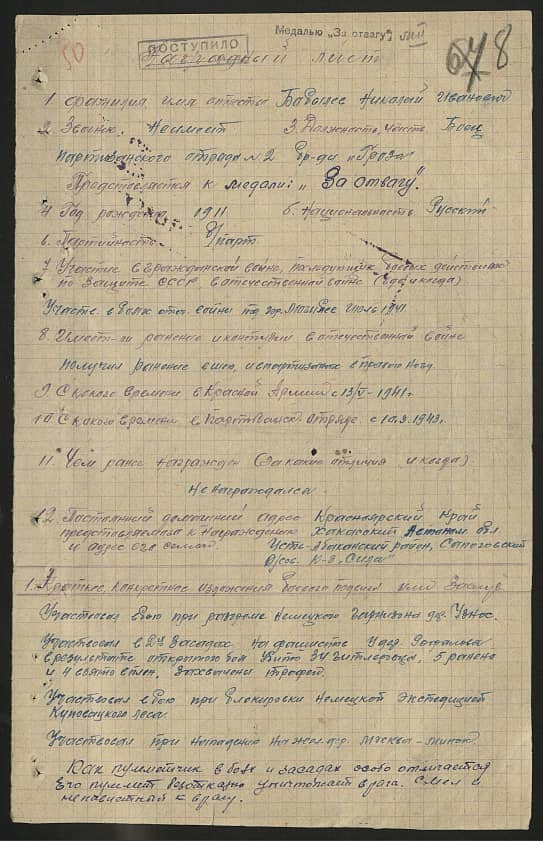 Медалью „За отвагу"
50
ПОСТУПИЛО
8
Наградной лист
1. Фамилия имя отчество Николай Иванович
2. Звание. Неимеет 3. Должность, часть. Боец
партизанского отряда №2 бр-ды „Гроза"
Представляется к медали: „За отвагу".
4. Год рождения 1911 5. Национальность Русский
6. Партийность б/парт.
7. Участие в гражданской войне, последующих боевых действиях
по защите СССР, в отечественной войне (где и когда)
Участв. в боях отеч. войны под гор. Июль 1941.
8. Имеет-ли ранения и контузии в отечественной войне
получил ранение в шею, и в партизанах в правую ногу.
9. С какого времени в Красной Армии с 13/V-1941г
10. С какого времени в Партизанск отряде. с 10.3.1943г.
11. Чем ранее награжден (за какие отличия и когда).
Не награждался
12. Постоянный домашний адрес Красноярский край
представляемого к награждению Хакасский Автоном обл
и адрес его семьи Усть-Абаканский район,
К-з
1. Краткое, конкретное изложения боевого подвига или заслуг.
Участвовал в бою при разгроме немецкого гарнизона
Участвовал в 2х засадах на фашистов
в результате открытого боя убито 34 гитлеровца, 5 ранено
и 4 взято в плен, захвачены трофеи.
Участвовал в бою при блокировки немецкой экспедицией
леса.
Участвовал при нападении на жел.д-р. Москва-Минск
Как пулеметчик в боях и засадах особо отличается
Его пулемет безотказно уничтожает врага. Смел и
ненавистный к врагу.